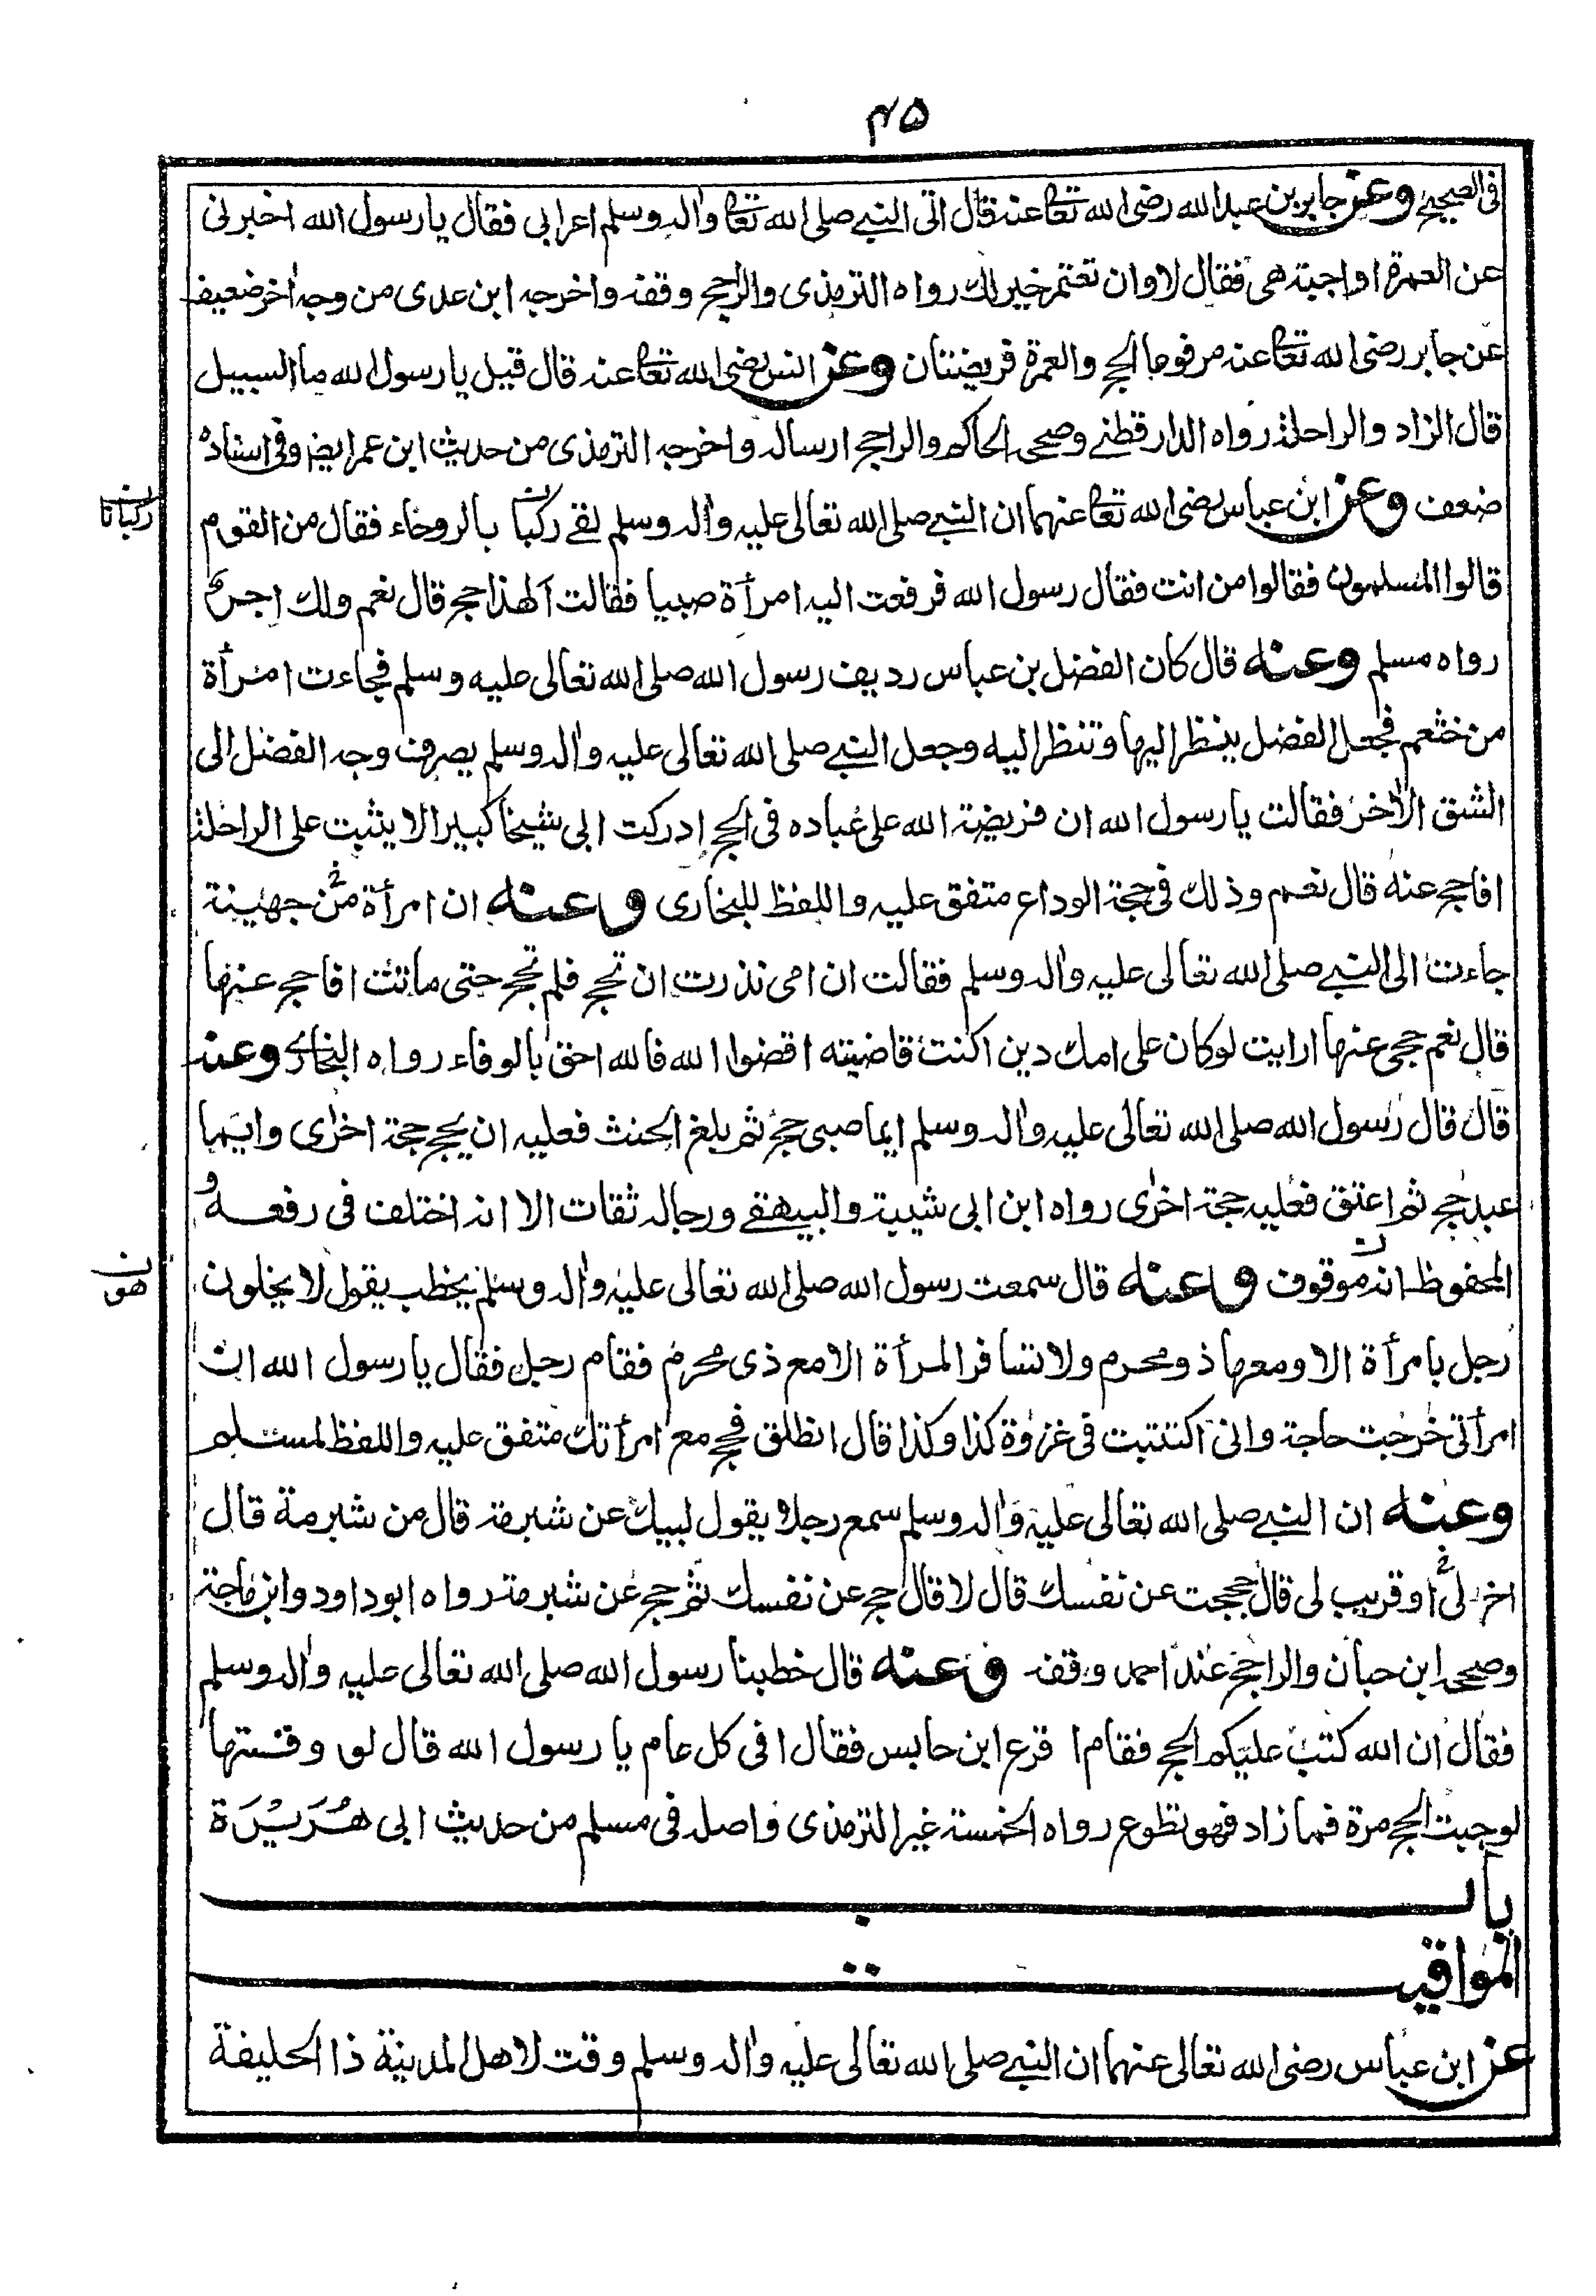 ٤٥
فى الصحيح وعن جابر بن عبد الله رضى الله تعالى عنه قال اتى النبى صلى الله تعالى واٰله وسلم اعرابى فقال يا رسول الله اخبرنى
عن العمرة اواجبة هى فقال لا وان تعتمر خير لك رواه الترمذى والراجح وقفه واخرجه ابن عدى من وجه اٰخر ضعيف
عن جابر رضى الله تعالى عنه مرفوعا الحج والعمرة فريضتان وعن انس رضى الله تعالى عنه قال قيل يا رسول الله ما السبيل
قال الزاد والراحلة رواه الدارقطنى وصححه الحاكم والراجح ارساله واخرجه الترمذى من حديث ابن عمر ايضا وفى اسناده
ضعف وعن ابن عباس رضى الله تعالى عنهما ان النبى صلى الله تعالى عليه واٰله وسلم لقى ركبا بالروحاء فقال من القوم
ركبانا
قالوا المسلمون فقالوا من انت فقال رسول الله فرفعت اليه امرأة صبيا فقالت ألهذا حج قال نعم ولك اجر
رواه مسلم وعنه قال كان الفضل بن عباس رديف رسول الله صلى الله تعالى عليه وسلم فجاءت امرأة
من خثعم فجعل الفضل ينظر اليها وتنظر اليه وجعل النبى صلى الله تعالى عليه واٰله وسلم يصرف وجه الفضل الى
الشق الاٰخر فقالت يا رسول الله ان فريضة الله على عباده فى الحج ادركت ابى شيخا كبيرا لا يثبت على الراحلة
افاحج عنه قال نعم وذلك فى حجة الوداع متفق عليه واللفظ للبخارى وعنه ان امرأة من جهينة
جاءت الى النبى صلى الله تعالى عليه واٰله وسلم فقالت ان امى نذرت ان تحج فلم تحج حتى ماتت افاحج عنها
قال نعم حجى عنها ارايت لو كان على امك دين اكنت قاضيته اقضوا الله فالله احق بالوفاء رواه البخارى وعنه
قال قال رسول الله صلى الله تعالى عليه واٰله وسلم ايما صبى حج ثم بلغ الحنث فعليه ان يحج حجة اخرٰى وايما
عبد حج ثم اعتق فعليه حجة اخرٰى رواه ابن ابى شيبة والبيهقى ورجاله ثقات الا انه اختلف فى رفعه و
المحفوظ انه موقوف وعنه قال سمعت رسول الله صلى الله تعالى عليه واٰله وسلم يخطب يقول لا يخلون
هو
رجل بامرأة الا ومعها ذو محرم ولا تسافر المرأة الا مع ذى محرم فقام رجل فقال يا رسول الله ان
امرأتى خرجت حاجة وانى اكتتبت فى غزوة كذا وكذا قال انطلق فحج مع امرأتك متفق عليه واللفظ لمسلم
وعنه ان النبى صلى الله تعالى عليه واٰله وسلم سمع رجلا يقول لبيك عن شبرمة قال من شبرمة قال
اخ لى او قريب لى قال حججت عن نفسك قال لا قال حج عن نفسك ثم حج عن شبرمة رواه ابو داود وابن ماجة
وصححه ابن حبان والراجح عند احمد وقفه وعنه قال خطبنا رسول الله صلى الله تعالى عليه واٰله وسلم
فقال ان الله كتب عليكم الحج فقام اقرع ابن حابس فقال افى كل عام يا رسول الله قال لو قلتها
لوجبت الحج مرة فما زاد فهو تطوع رواه الخمسة غير الترمذى واصله فى مسلم من حديث ابى هُرَيْرَة
باب
المواقيت
عن ابن عباس رضى الله تعالى عنهما ان النبى صلى الله تعالى عليه واٰله وسلم وقت لاهل المدينة ذا الحليفة